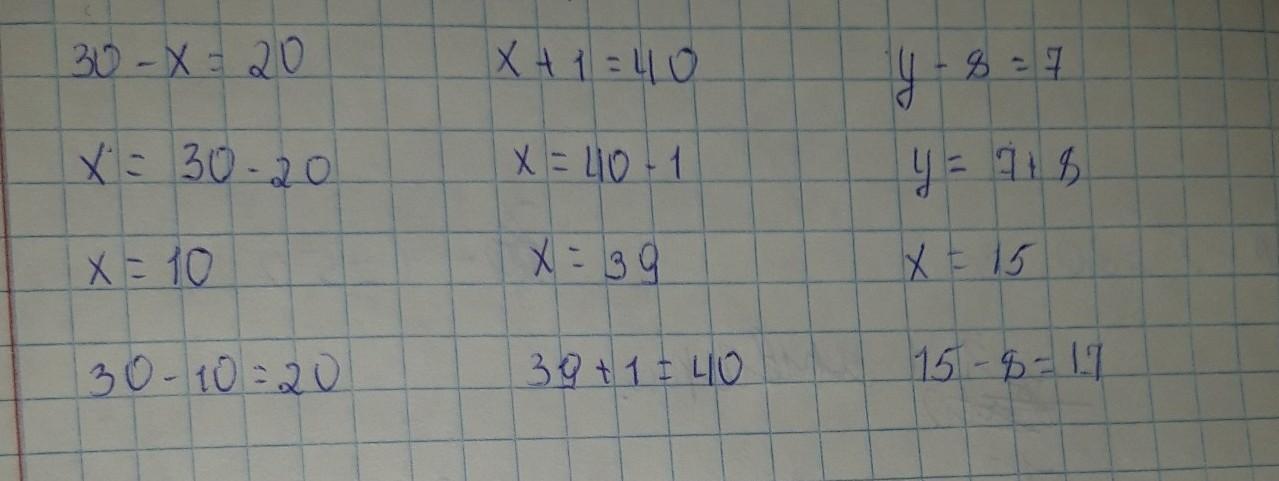 30 - x = 20 x + 1 = 40 y - 8 = 7
x = 30 - 20 x = 40 - 1 y = 7 + 8
x = 10 x = 39 x = 15
30 - 10 = 20 39 + 1 = 40 15 - 8 = 17